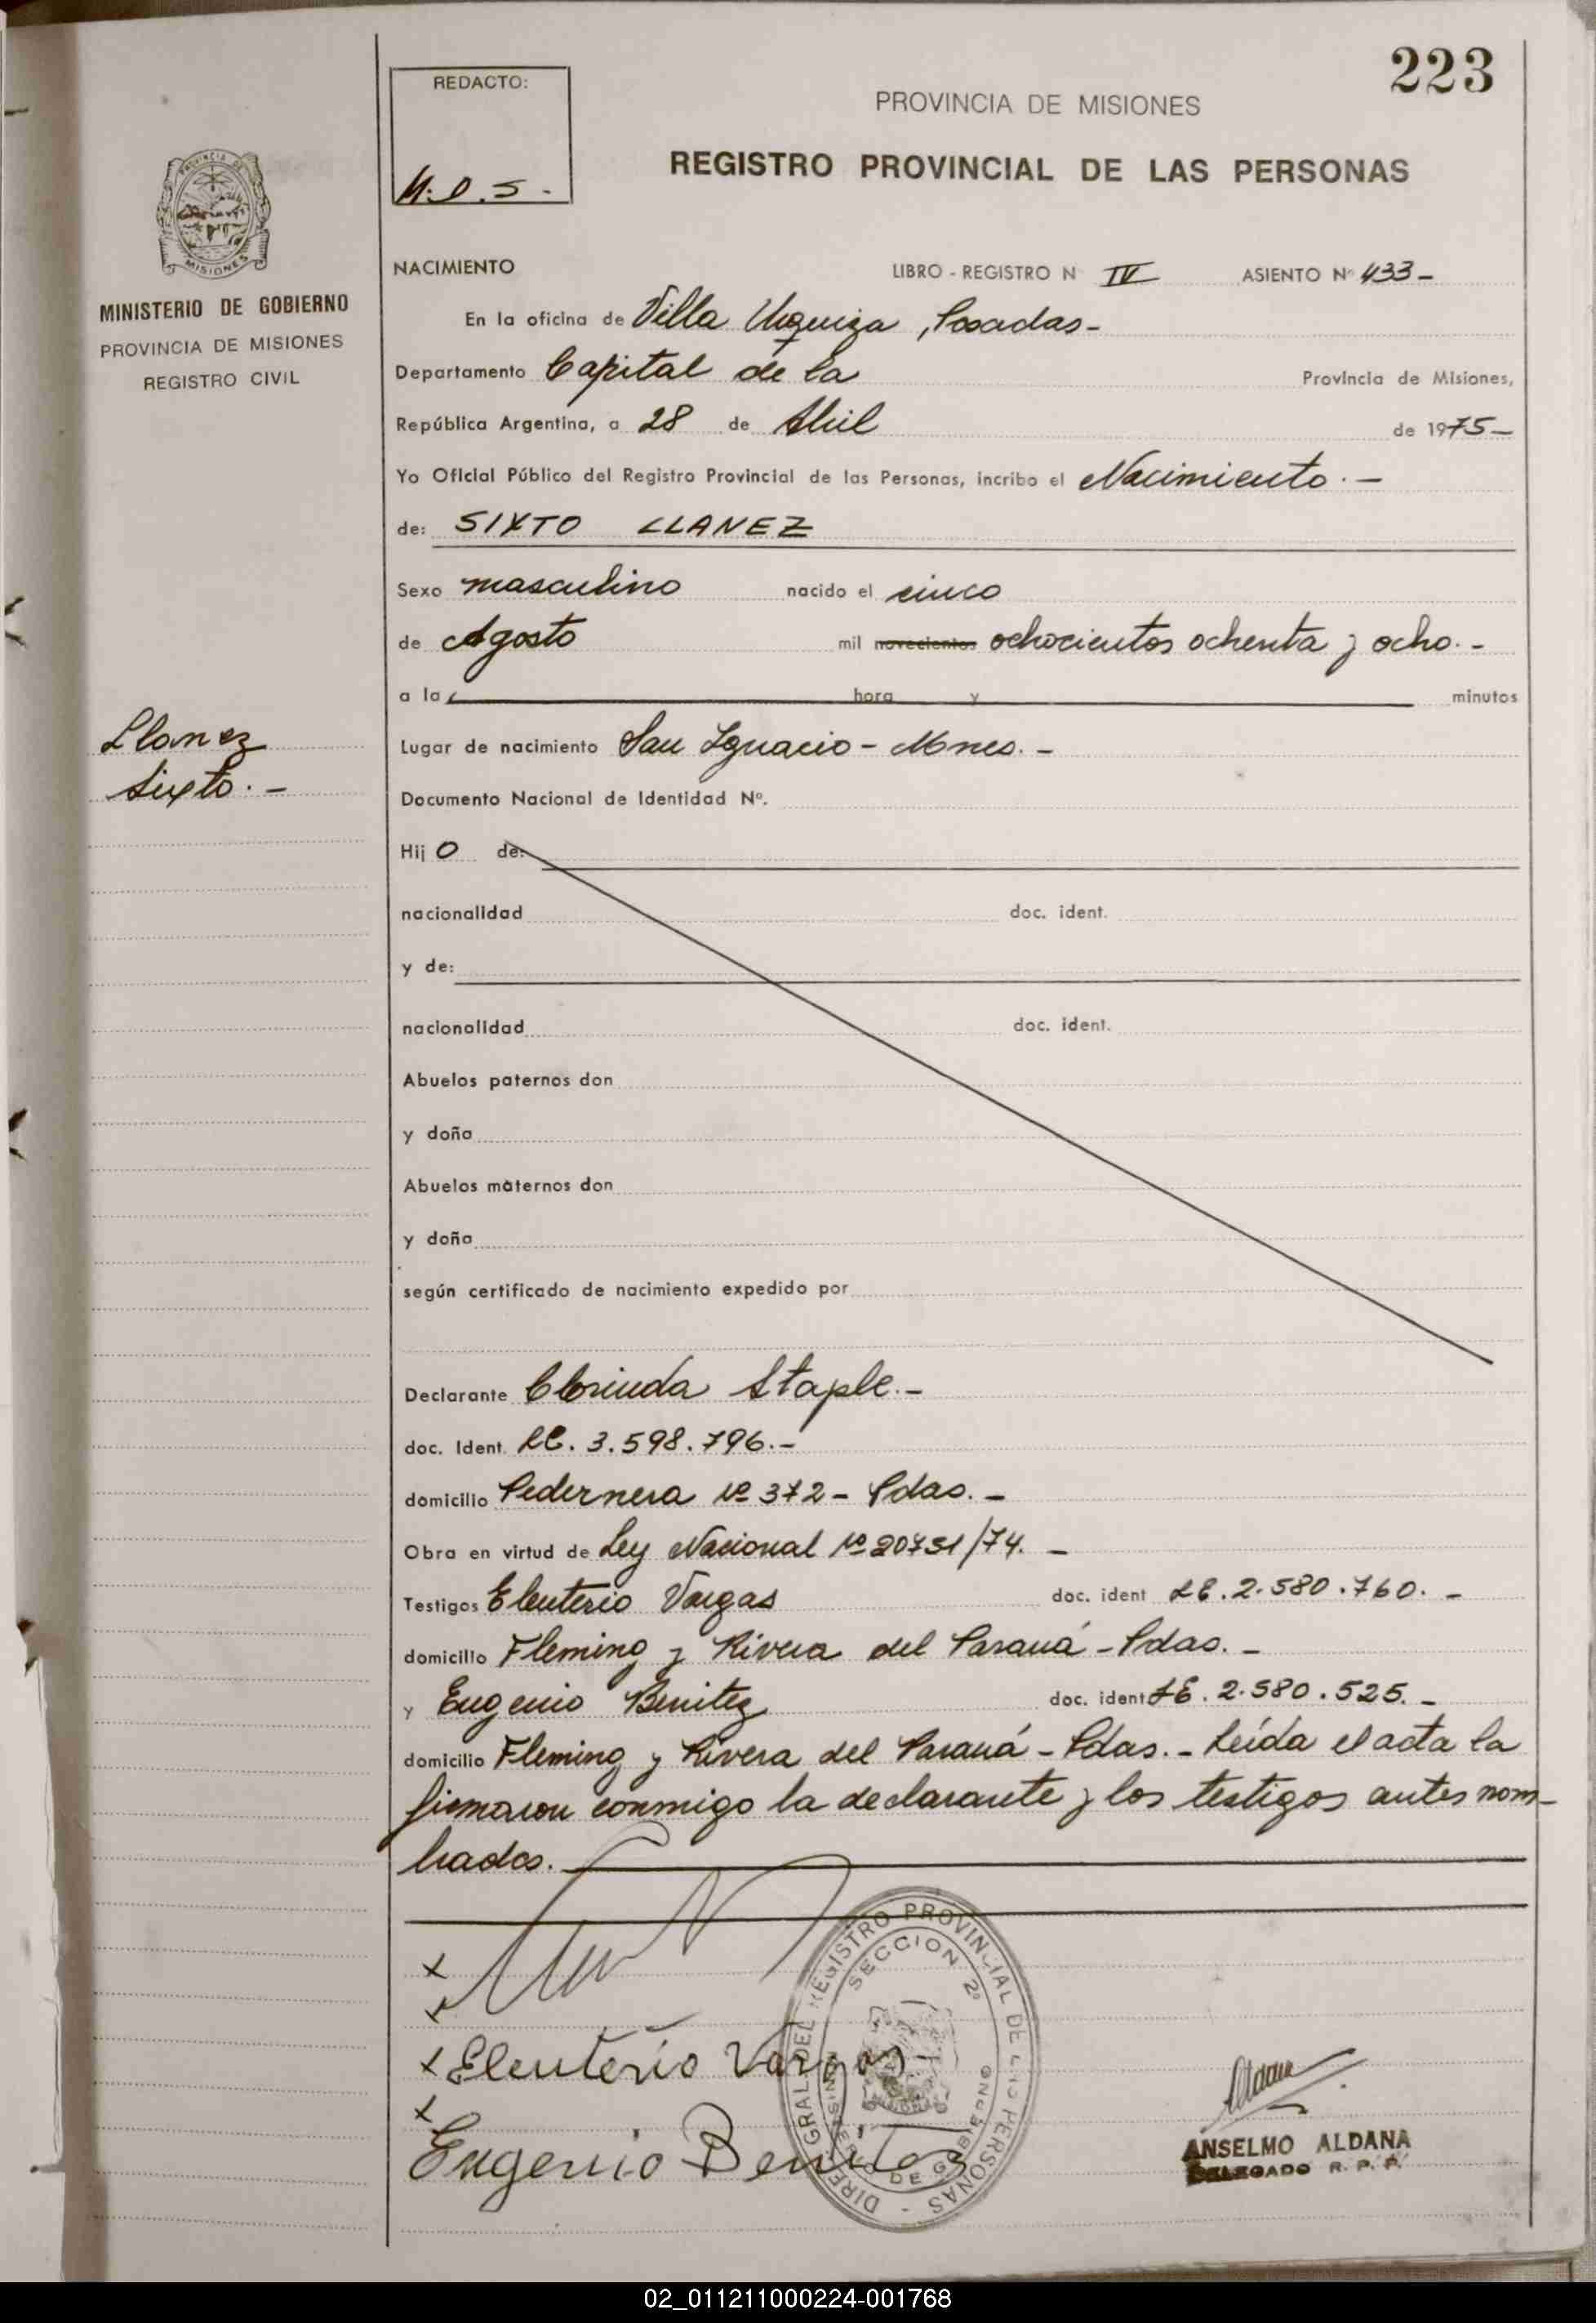 223
REDACTO:
PROVINCIA DE MISIONES
REGISTRO PROVINCIAL DE LAS PERSONAS
PROVINCIA DE
MISIONES
MINISTERIO DE GOBIERNO
PROVINCIA DE MISIONES
REGISTRO CIVIL
NACIMIENTO LIBRO - REGISTRO N IV ASIENTO Nº 433-
En la oficina de Villa Urquiza, Posadas-
Departamento Capital de la Provincia de Misiones,
República Argentina, a 28 de Abril de 1975-
Yo Oficial Público del Registro Provincial de las Personas, incribo el Nacimiento.-
de: SIXTO LLANEZ
Sexo masculino nacido el cinco
de Agosto mil novecientos ochocientos ochenta y ocho.-
a la hora y minutos
Llanez
Sixto.-
Lugar de nacimiento San Ignacio - Mnes.-
Documento Nacional de Identidad Nº.
Hij o de:
nacionalidad doc. ident.
y de:
nacionalidad doc. ident.
Abuelos paternos don
y doña
Abuelos maternos don
y doña
según certificado de nacimiento expedido por
Declarante Clorinda Staple.-
doc. Ident. LC. 3.598.796.-
domicilio Pedernera Nº 372 - Pdas.-
Obra en virtud de Ley Nacional Nº 20751/74.-
Testigos Eleuterio Vargas doc. ident LE. 2.580.760.-
domicilio Fleming y Rivera del Paraná - Pdas.-
y Eugenio Benitez doc. ident LE. 2.580.525.-
domicilio Fleming y Rivera del Paraná - Pdas.- Leída el acta la
firmaron conmigo la declarante y los testigos antes nom-
brados.
x
x
x Eleuterio Vargas
x
Eugenio Benitez
DIREC. GRAL. DEL REGISTRO PROVINCIAL DE LAS PERSONAS -
SECCION 2ª
MINISTERIO DE GOBIERNO
Aldana
ANSELMO ALDANA
DELEGADO R. P. P.
02_011211000224-001768